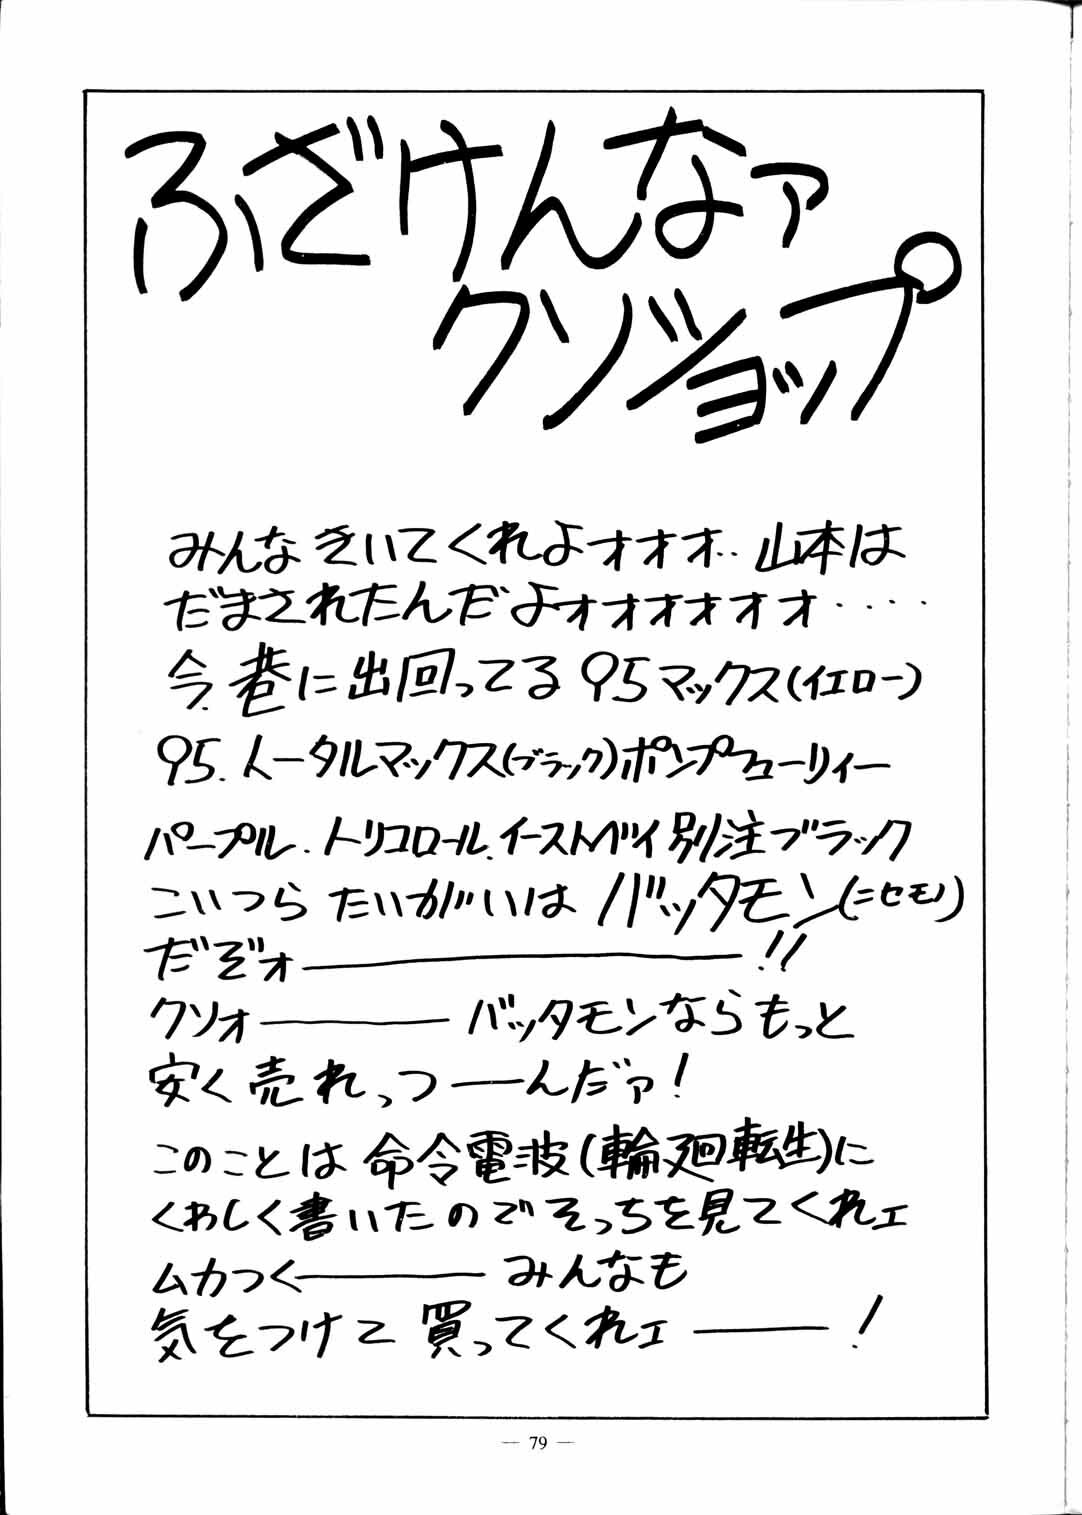 ふざけんなァ
クソショップ
みんなきいてくれよォオオ‥山本は
だまされたんだよォォオオオオ・・・・
今、巷に出回ってる95マックス(イエロー)
95.トータルマックス(ブラック)ポンプフューリィー
パープル、トリコロール、イーストベイ別注ブラック
こいつらたいがいはバッタモン(ニセモノ)
だぞォ――――!!
クソォ―― バッタモンならもっと
安く売れっつーんだァ!
このことは命令電波(輪廻転生)に
くわしく書いたのでそっちを見てくれェ
ムカつく―― みんなも
気をつけて買ってくれェ――!
— 79 —